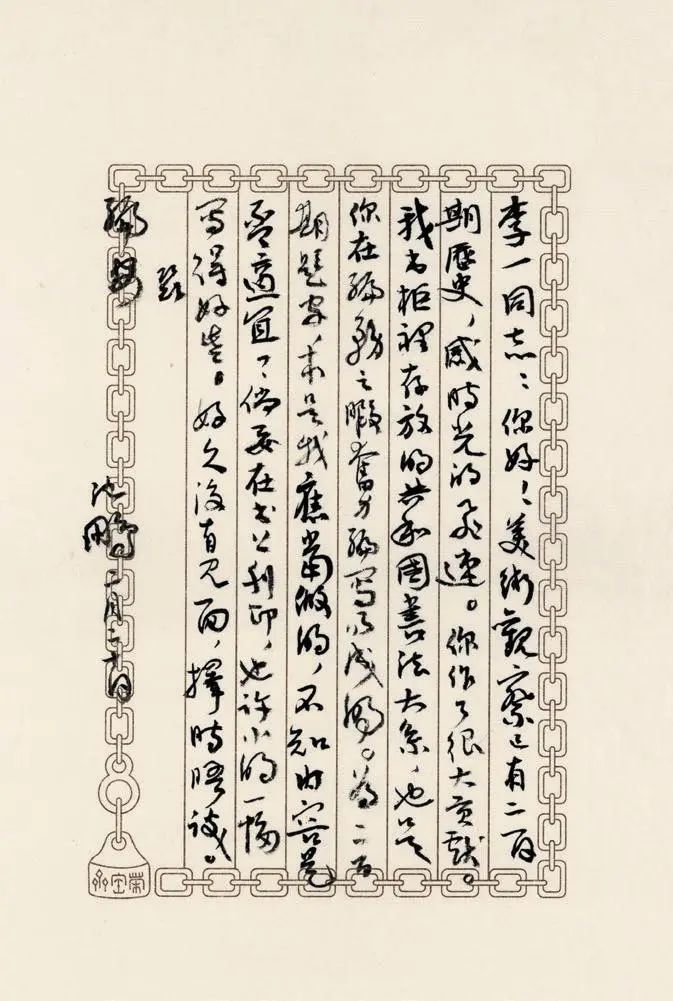 李一同志：你好！美術觀察已有二百
期歷史，感時光的飛速。你作了很大貢獻。
我书柜裡存放的共和國書法大系，也是
你在编務之暇奮力编寫而成的。为二百
期題字，本是我應當做的，不知内容是
否適宜？倘要在书上刊印，也许小的一幅
写得好些。好久沒有见面，擇時晤談。
致
编安
沈鵬 二月二十日
荣宝斋